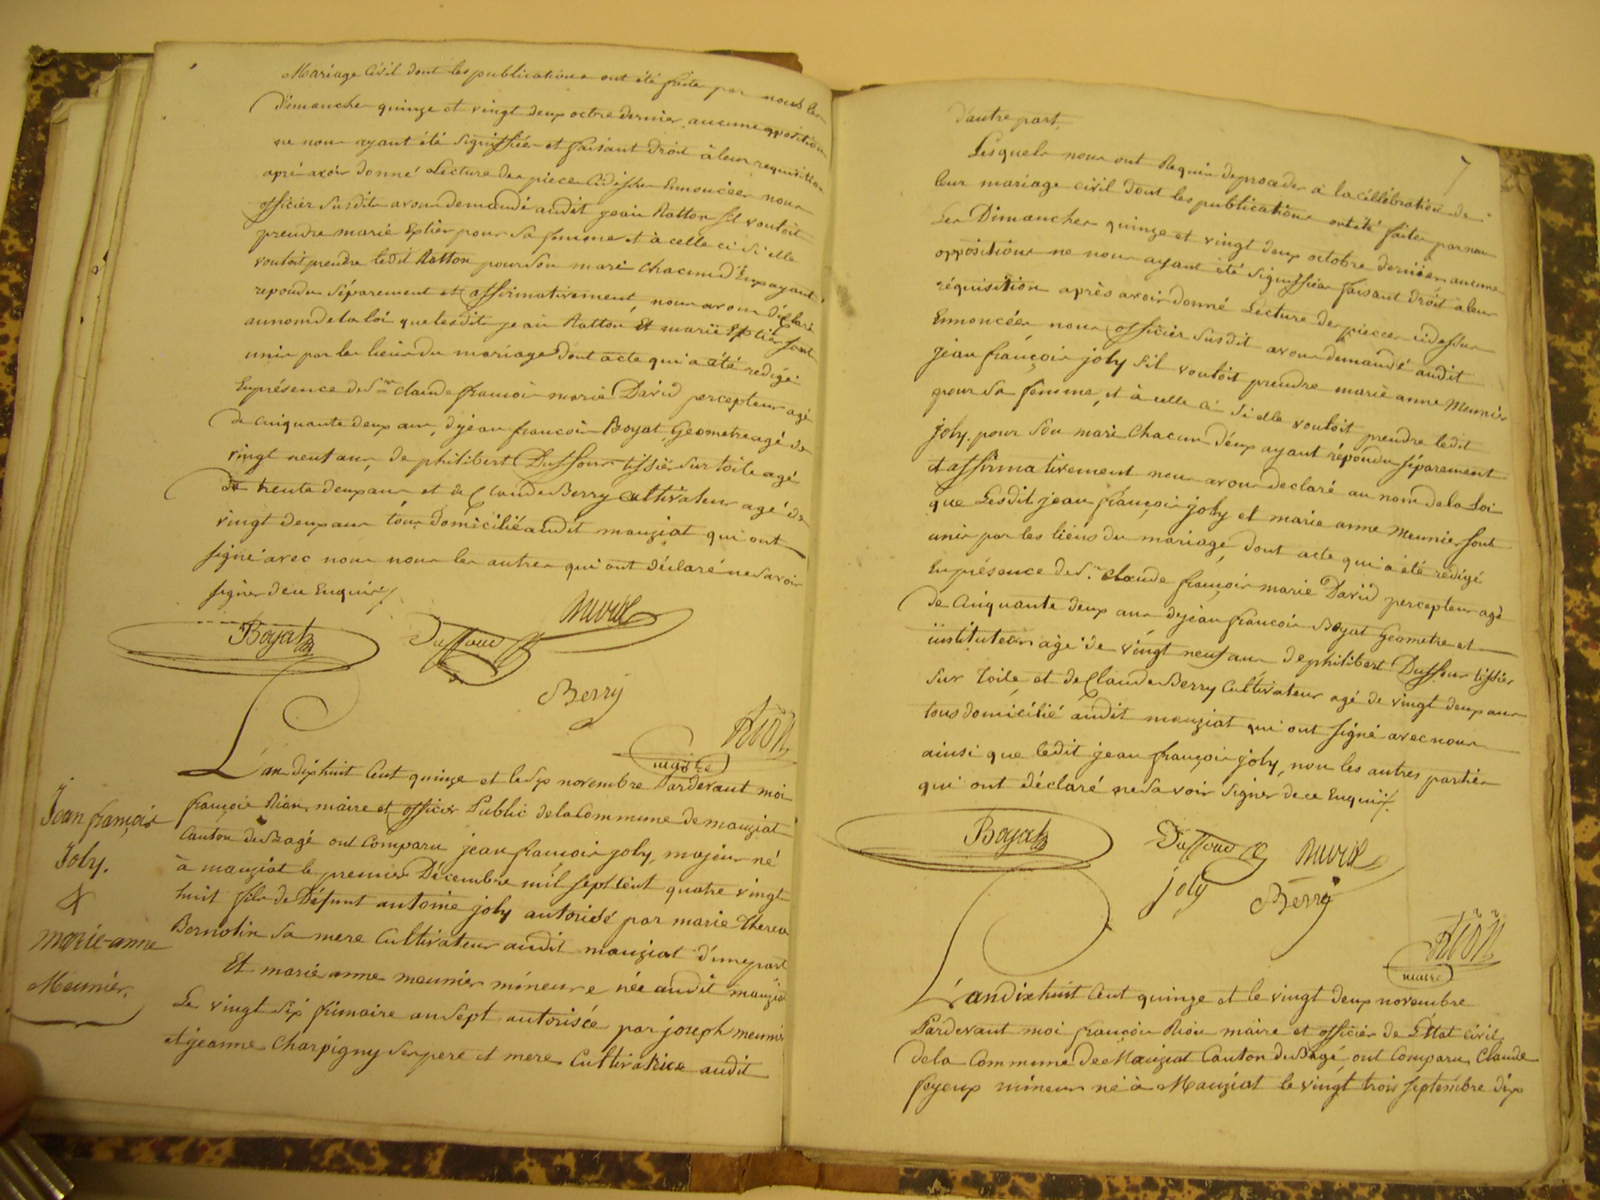 Mariage Civil dont les publications ont été faite par nous les
Dimanches quinze et vingt deux octre dernier aucune opposition
ne nous ayant été Signiffiée et faisant droit à leur requisition
après avoir donné Lecture des pieces Cidessus Ennoncées nous
officier Susdit avons demandé audit jean Ratton sil vouloit
prendre marie Eplier pour Sa femme et à celle ci Si elle
vouloit prendre ledit Ratton pour Son mari Chacun D'eux ayant
repondu Séparement et affirmativement, nous avons déclaré
au nom de la loi que lesdits jean Ratton Et marie Eplier Sont
unis par les liens du mariage dont acte qui a été redigé
En présence de Sr claude francois marie David percepteur agé
de cinquante deux ans, de jean francois Boyat Géometre agé de
vingt neuf ans, de philibert Duffour tissier sur toile agé
de trente deux ans et de Claude Berry Cultivateur agé de
vingt deux ans tous domicilié audit manziat qui ont
signé avec nous non les autres qui ont déclaré ne Savoir
signer de ce Enquis
Boyat
Duffour
David
Berry
Rion
maire
Jean françois
Joly.
&
marie-anne
Meunier.
L'an dixhuit Cent quinze et le Six novembre Pardevant moi
françois Rion, maire et officier Public de la Commune de manziat
Canton de Bagé ont Comparu jean francois joly, majeur né
à manziat le premier Décembre mil sept cent quatre vingt
huit fils de Défunt antoine joly autorisé par marie Theresa
Bornotin Sa mere Cultivateur audit manziat d'une part
Et marie anne meunier mineure née audit manziat
Le vingt Six frimaire an Sept autorisée par joseph meunier
et jeanne Charpigny Ses pere et mere Cultivatrice audit
7
d'autre part.
Lesquels nous ont Requis de proceder à la célébration de
leur mariage civil dont les publications ont été faites par nous
Les Dimanches quinze et vingt deux octobre dernier, aucune
oppositions ne nous ayant été Signiffiée faisant droit a leur
réquisition après avoir donné Lecture des pieces cidessus
Ennoncées nous officier Susdit avons demandé audit
jean françois joly S'il vouloit prendre marie anne Meunier
pour Sa femme, et à celle ci Si elle vouloit prendre ledit
joly, pour Son mari Chacun d'eux ayant répondu séparement
et affirmativement nous avons declaré au nom de la Loi
que Lesdit jean françois joly et marie anne Meunier sont
unis par les liens du mariage, dont acte qui a été redigé
En présence de Sr Claude françois marie David percepteur agé
de Cinquante deux ans de jean francois Boyat Géometre et
instituteur agé de vingt neuf ans de philibert Duffour tissier
sur Toile et de Claude Berry Cultivateur agé de vingt deux ans
tous domicilié audit manziat qui ont signé avec nous
ainsi que ledit jean françois joly, non les autres parties
qui ont déclaré ne Savoir Signer de ce Enquis
Boyat
Duffour
David
joly
Berry
Rion
maire
L'an dixhuit Cent quinze et le vingt deux novembre
Pardevant moi françois Rion maire et officier de L'Etat Civil
de la Commune De Manziat Canton de Bagé ont Comparu, Claude
foyeux mineur né à Manziat le vingt trois septembre dix